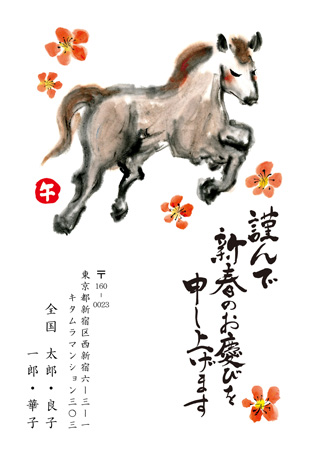 午
謹んで
新春のお慶びを
申し上げます
〒160-0023
東京都新宿区西新宿六-三-一
キタムラマンション三〇三
全国 太郎・良子
一郎・華子